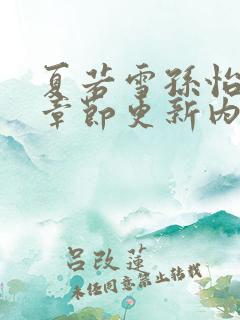 夏若雪孙怡
章节更新内
吕改莲
未经同意禁止转载